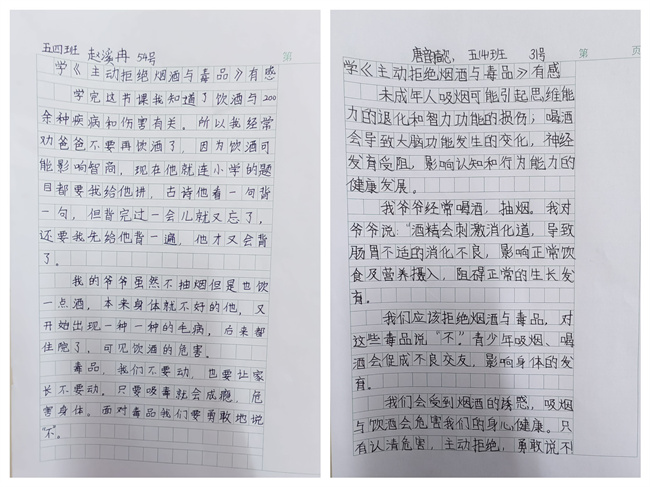 五四班 赵溪冉 54号
第
学《主动拒绝烟酒与毒品》有感
学完这节课我知道了饮酒与200
余种疾病和伤害有关。所以我经常
劝爸爸不要再饮酒了，因为饮酒可
能影响智商，现在他就连小学的题
目都要我给他讲，古诗他看一句背
一句，但背完过一会儿就又忘了，
还要我先给他背一遍，他才又会背
了。
我的爷爷虽然不抽烟但是也饮
一点酒，本来身体就不好的他，又
开始出现一种一种的毛病，后来都
住院了，可见饮酒的危害。
毒品，我们不要动，也要让家
长不要动，只要吸毒就会成瘾，危
害身体。面对毒品我们要勇敢地说
“不”。
五四班 31号
第 页
学《主动拒绝烟酒与毒品》有感
未成年人吸烟可能引起思维能
力的退化和智力功能的损伤；喝酒
会导致大脑功能发生的变化，神经
发育受阻，影响认知和行为能力的
健康发展。
我爷爷经常喝酒，抽烟。我对
爷爷说：“酒精会刺激消化道，导致
肠胃不适的消化不良，影响正常饮
食及营养摄入，阻碍正常的生长发
育。
我们应该拒绝烟酒与毒品，对
这些毒品说“不”。青少年吸烟、喝
酒会促成不良交友，影响身体的发
育。
我们会受到烟酒的诱惑，吸烟
与饮酒会危害我们的身心健康。只
有认清危害，主动拒绝，勇敢说不